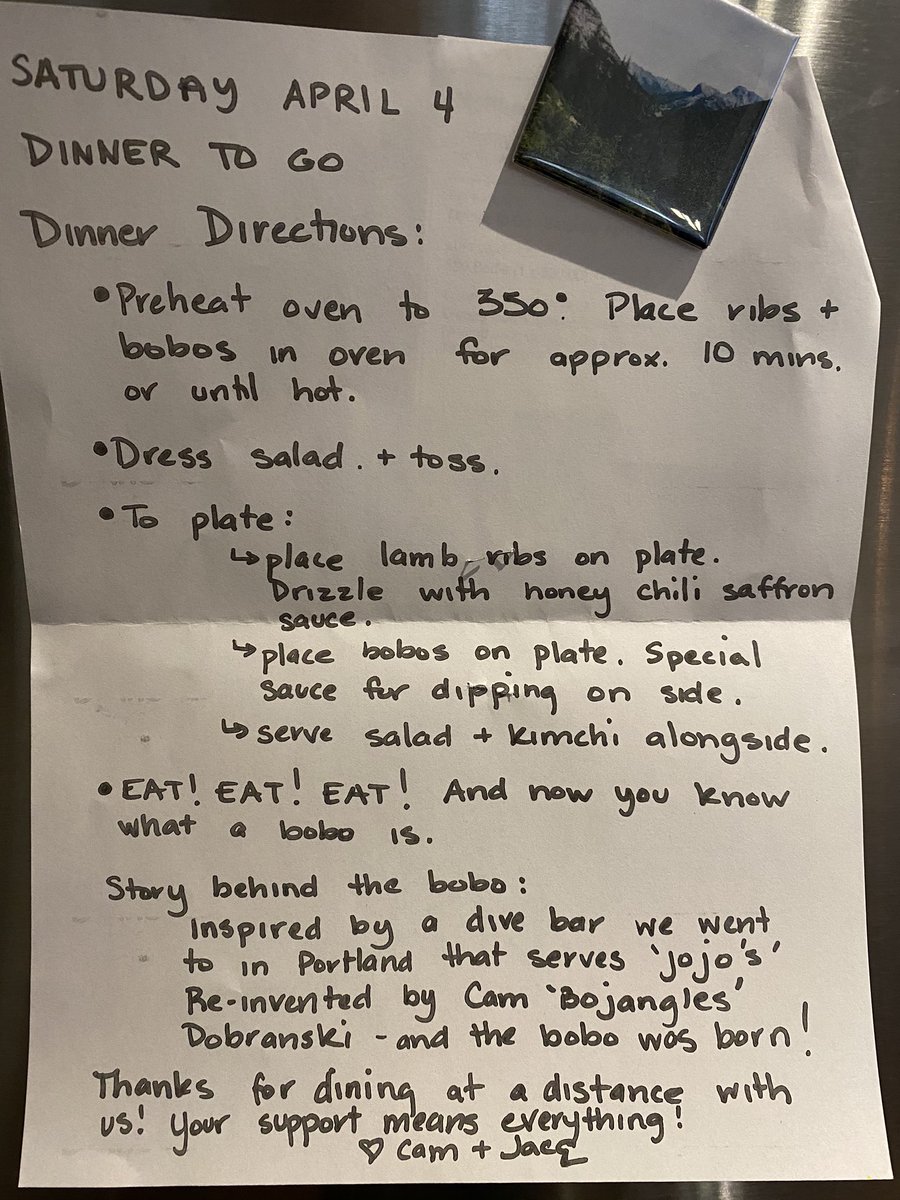 SATURDAY APRIL 4
DINNER TO GO
Dinner Directions:
•Preheat oven to 350°. Place ribs +
bobos in oven for approx. 10 mins.
or until hot.
•Dress salad. + toss.
•To plate:
↳place lamb ribs on plate.
Drizzle with honey chili saffron
sauce.
↳place bobos on plate. Special
sauce for dipping on side.
↳serve salad + kimchi alongside.
•EAT! EAT! EAT! And now you know
what a bobo is.
Story behind the bobo:
Inspired by a dive bar we went
to in Portland that serves 'jojo's'
Re-invented by Cam 'Bojangles'
Dobranski - and the bobo was born!
Thanks for dining at a distance with
us! Your support means everything!
♡ Cam + Jacq